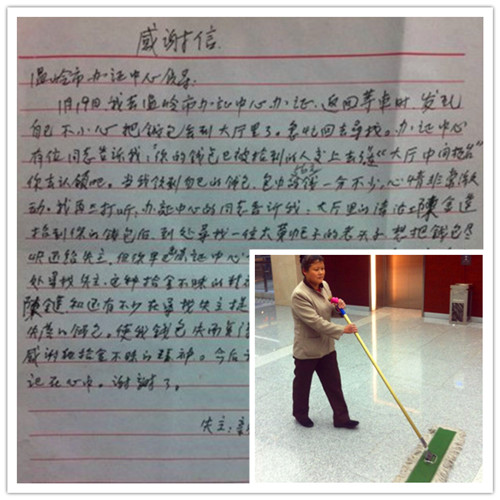 感谢信
温岭市办证中心领导:
1月19日我去温岭市办证中心办证,返回等车时,发现
自己不小心把钱包丢到大厅里了。急忙回去寻找。办证中心
有位同志告诉我,你的钱包已被捡到的人交上去送“大厅中间柜台”
你去认领吧。当我领到自己的钱包,包内562钱一分不少,心情非常激
动。我再三打听,办证中心的同志告诉我,大厅里的清洁工陈金莲
捡到你的钱包后,到处寻找一位大草帽的老头子想把钱包尽
快还给失主,但你早已离证中心
处寻找失主,这种拾金不昧的精
陈 和还有不少在寻找失主
失落的钱包。使我钱包失而复得
感谢她拾金不昧的精神。今后
记在心中。谢谢了。
失主: